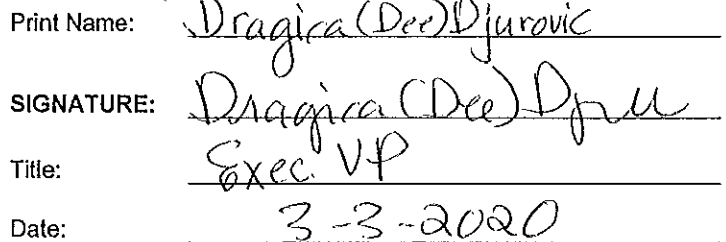 Print Name: Dragica (Dee) Djurovic
SIGNATURE: Dragica (Dee)
Title: Exec. VP
Date: 3-3-2020